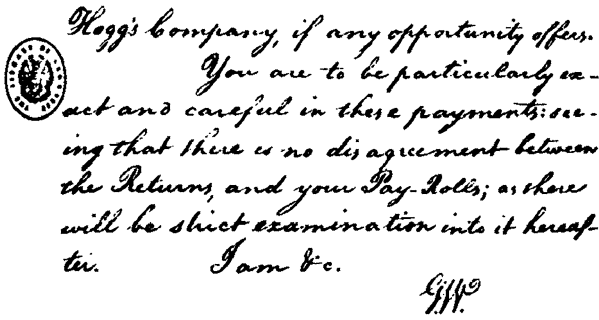 Hogg's Company, if any opportunity offers.
You are to be particularly ex-
act and careful in these payments: see-
ing that there is no disagreement between
the Returns, and your Pay-Rolls; as there
will be strict examination into it hereaf-
ter. I am &c.
G.W.